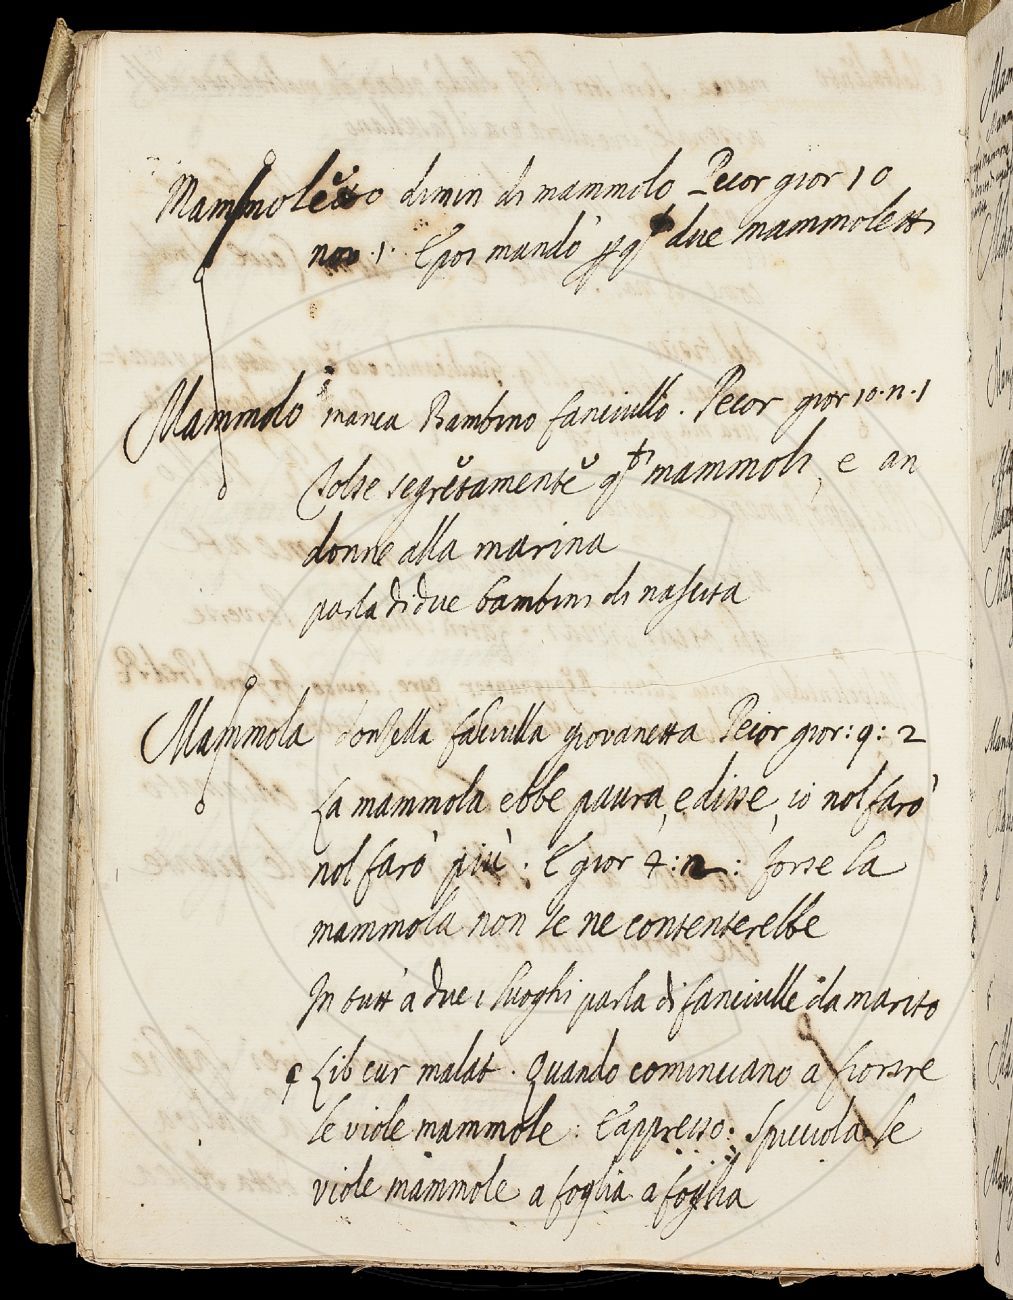 Mammoletto dimin di mammolo Pecor gior 10
nov. 1. E poi mandò p qti due mammoletti
Mammolo manca Bambino fanciullo. Pecor gior 10. n. 1
Tolse segretamente qti mammoli, e an
donne alla marina
parla di due bambini di nascita
Mammola donzella fanciulla giovanetta Pecor gior: 9: 2
La mammola ebbe paura, e disse, io nol farò
nol farò più. E gior 4: n 2: forse la
mammola non se ne contenterebbe
In tutt'a due i luoghi parla di fanciulle da marito
q Lib cur malat. Quando cominciano a fiorire
le viole mammole: E appresso: Spicciola le
viole mammole a foglia a foglia